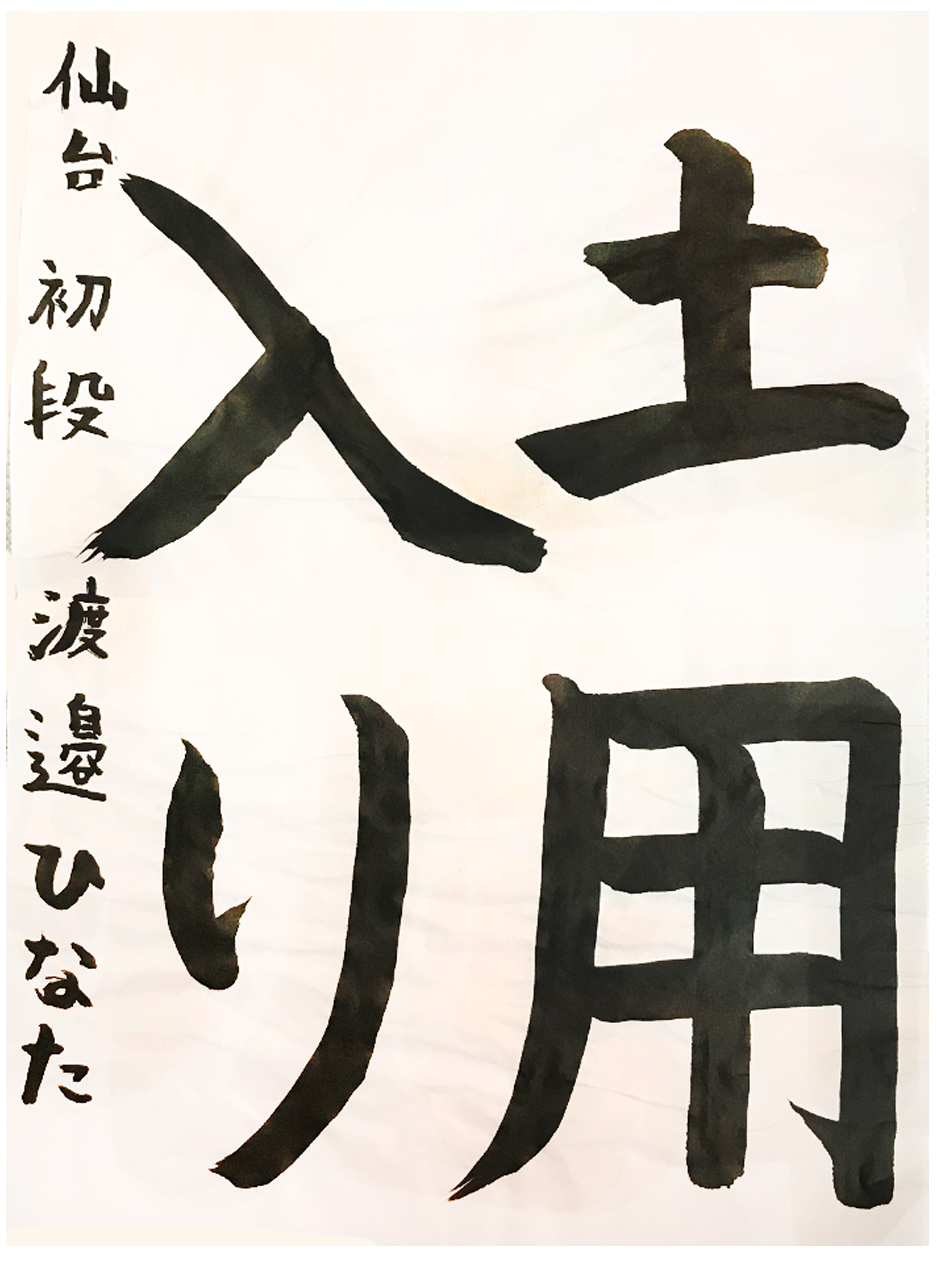 土用
入り
仙台 初段 渡邉ひなた